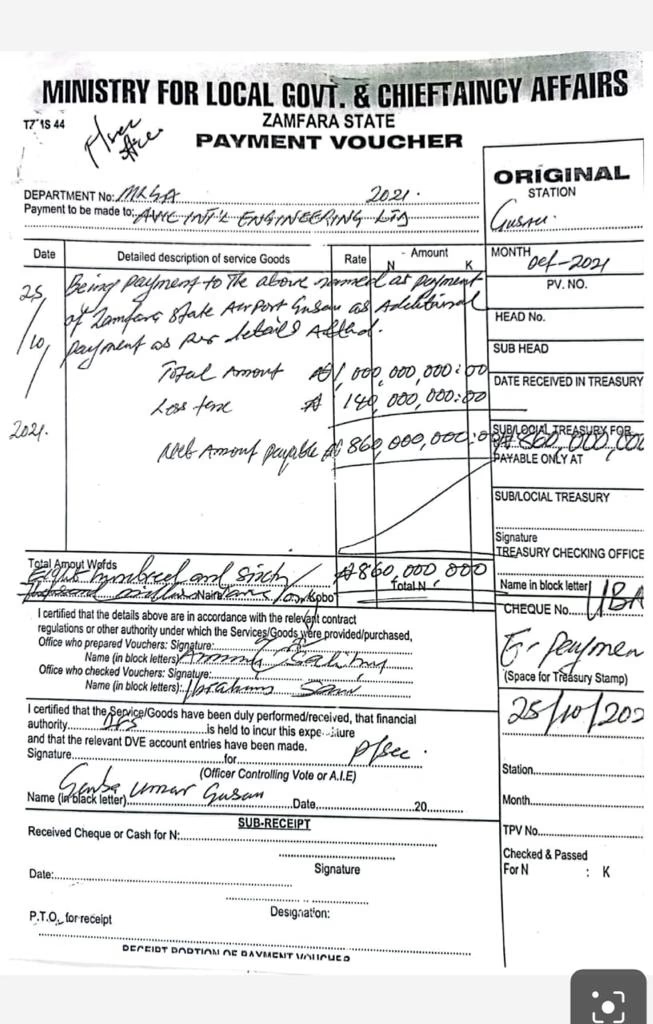 MINISTRY FOR LOCAL GOVT. & CHIEFTAINCY AFFAIRS
ZAMFARA STATE
PAYMENT VOUCHER
P/sec
ORIGINAL
STATION
Gusau
DEPARTMENT No: MLGA 2021.
Payment to be made to: AWC INT'L ENGINEERING LTD
Date
Detailed description of service Goods
Rate
Amount
N K
MONTH Oct-2021
PV. NO.
HEAD No.
SUB HEAD
DATE RECEIVED IN TREASURY
25/10/2021.
Being payment to the above named as payment
of Zamfara State Airport Gusau as Additional
payment as per details Attchd.
Total Amount ₦1,000,000,000:00
Less 140,000,000:00
Nett Amount payable ₦860,000,000:00
SUB/LOCIAL TREASURY FOR
₦860,000,000
PAYABLE ONLY AT
SUB/LOCIAL TREASURY
Signature
TREASURY CHECKING OFFICE
Total Amout Wprds
Eight hundred and sixty
Naira Kobo
₦860,000,000
Total N
Name in block letter
CHEQUE No. UBA
E-paymen
(Space for Treasury Stamp)
25/10/202
I certified that the details above are in accordance with the relevant contract
regulations or other authority under which the Services/Goods were provided/purchased,
Office who prepared Vouchers: Signature:
Name (in block letters)
Office who checked Vouchers: Signature:
Name (in block letters): Ibrahim Sani
I certified that the Service/Goods have been duly performed/received, that financial
authority is held to incur this expe iture
and that the relevant DVE account entries have been made.
Signature for P/sec.
(Officer Controlling Vote or A.I.E)
Umar Gusau
Name (in black letter) Date, 20
Station
Month
TPV No.
Checked & Passed
For N : K
SUB-RECEIPT
Received Cheque or Cash for N:
Signature
Date:
Designation:
P.T.O, for receipt
RECEIPT PORTION OF PAYMENT VOUCHER